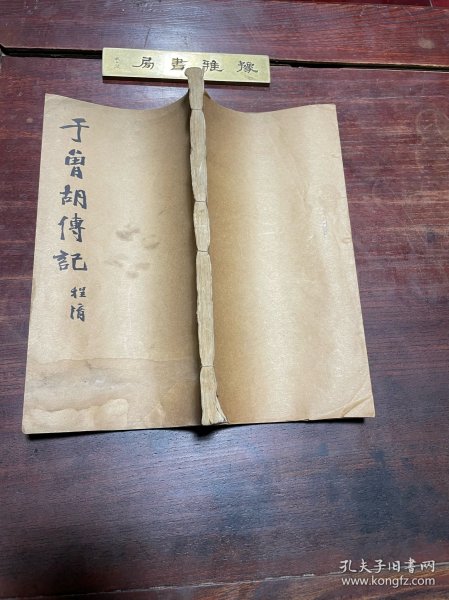 豫雅書局
于曾胡傳記
程淯
孔夫子旧书网
www.kongfz.com